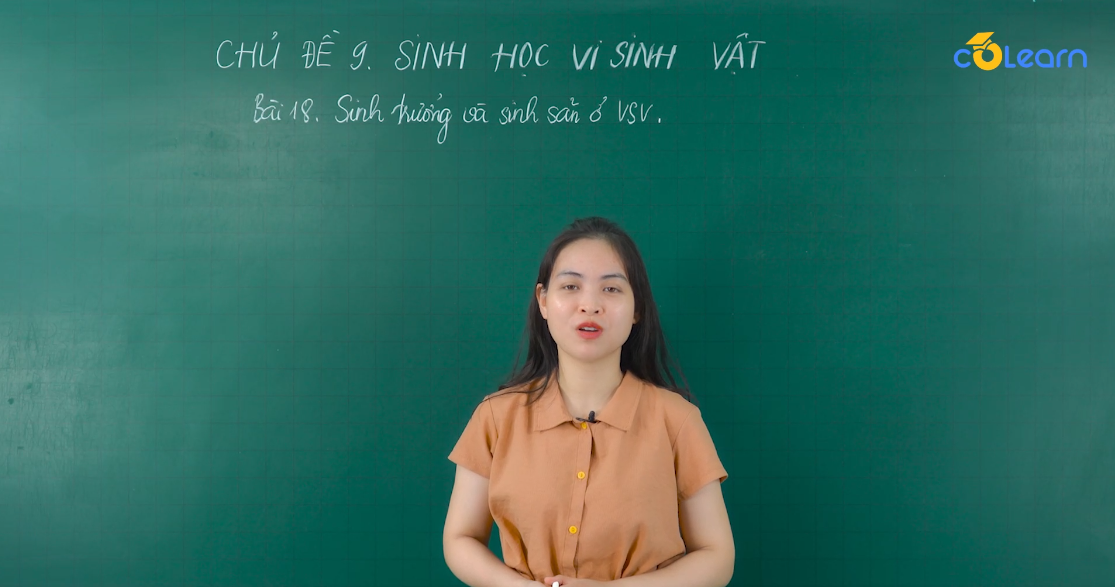 CHỦ ĐỀ 9. SINH HỌC VI SINH VẬT
COLearn
Bài 18. Sinh trưởng và sinh sản ở VSV.